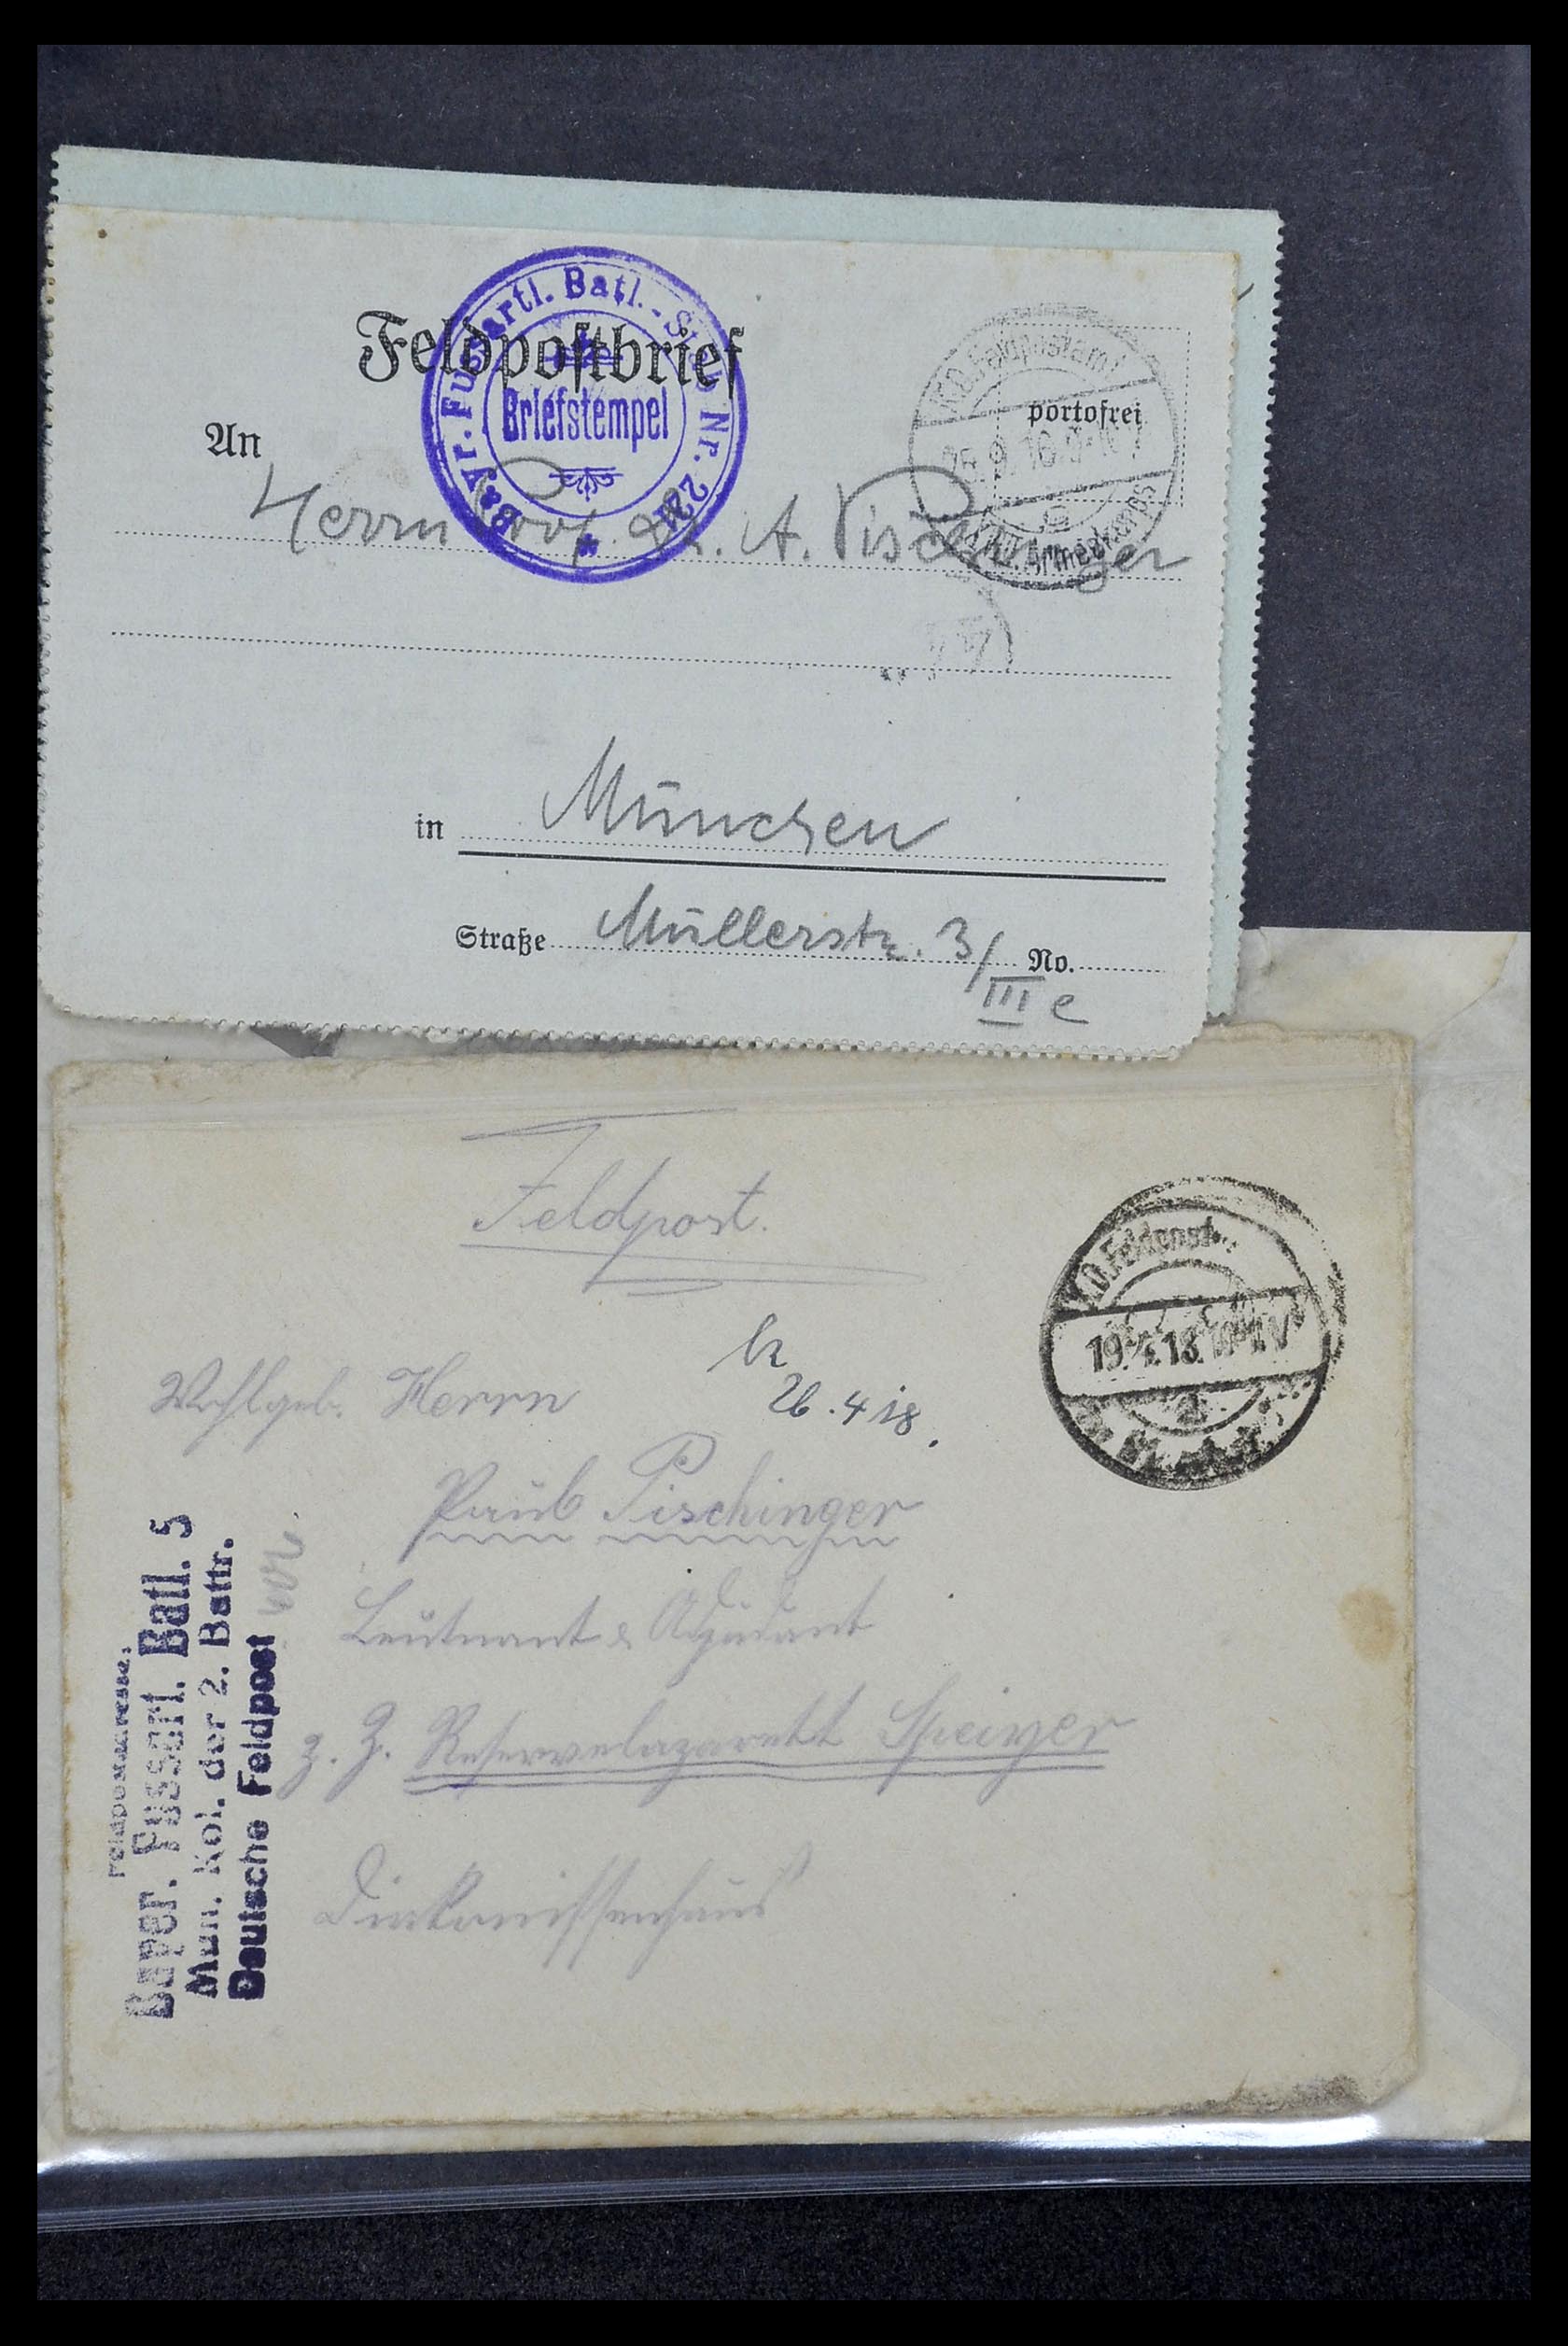 Feldpostbrief
Bayr. Fussartl. Batl.-Stab Nr. 22
Briefstempel
K.D. Feldpostamt
portofrei
Armeekorps
An
Herrn Prof. Dr. A. Pischinger
in München
Straße Müllerstr. 3/ No.
III e
Feldpost.
K.D. Feldpost
19.4.18.
26.4 18.
Wohlgeb. Herrn
Paul Pischinger
Leutnant & Adjudant
z. Z. Reservelazarett Speiyer
Diakonissenhaus
Feldpostadresse:
Bayer. Fussart. Batl. 5
Mun. Kol. der 2. Battr.
Deutsche Feldpost